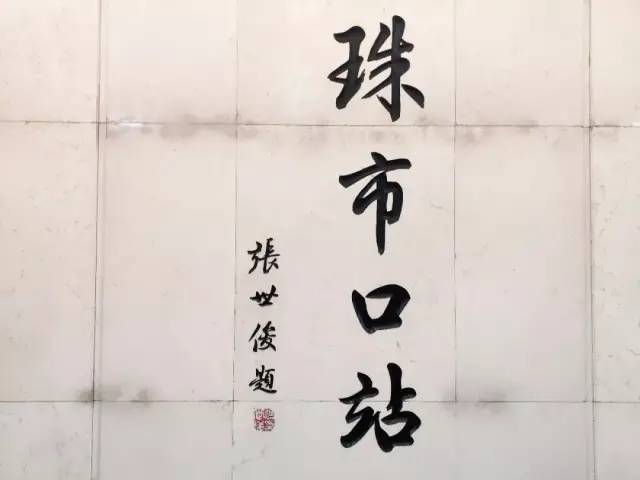 珠市口站
張世俊題